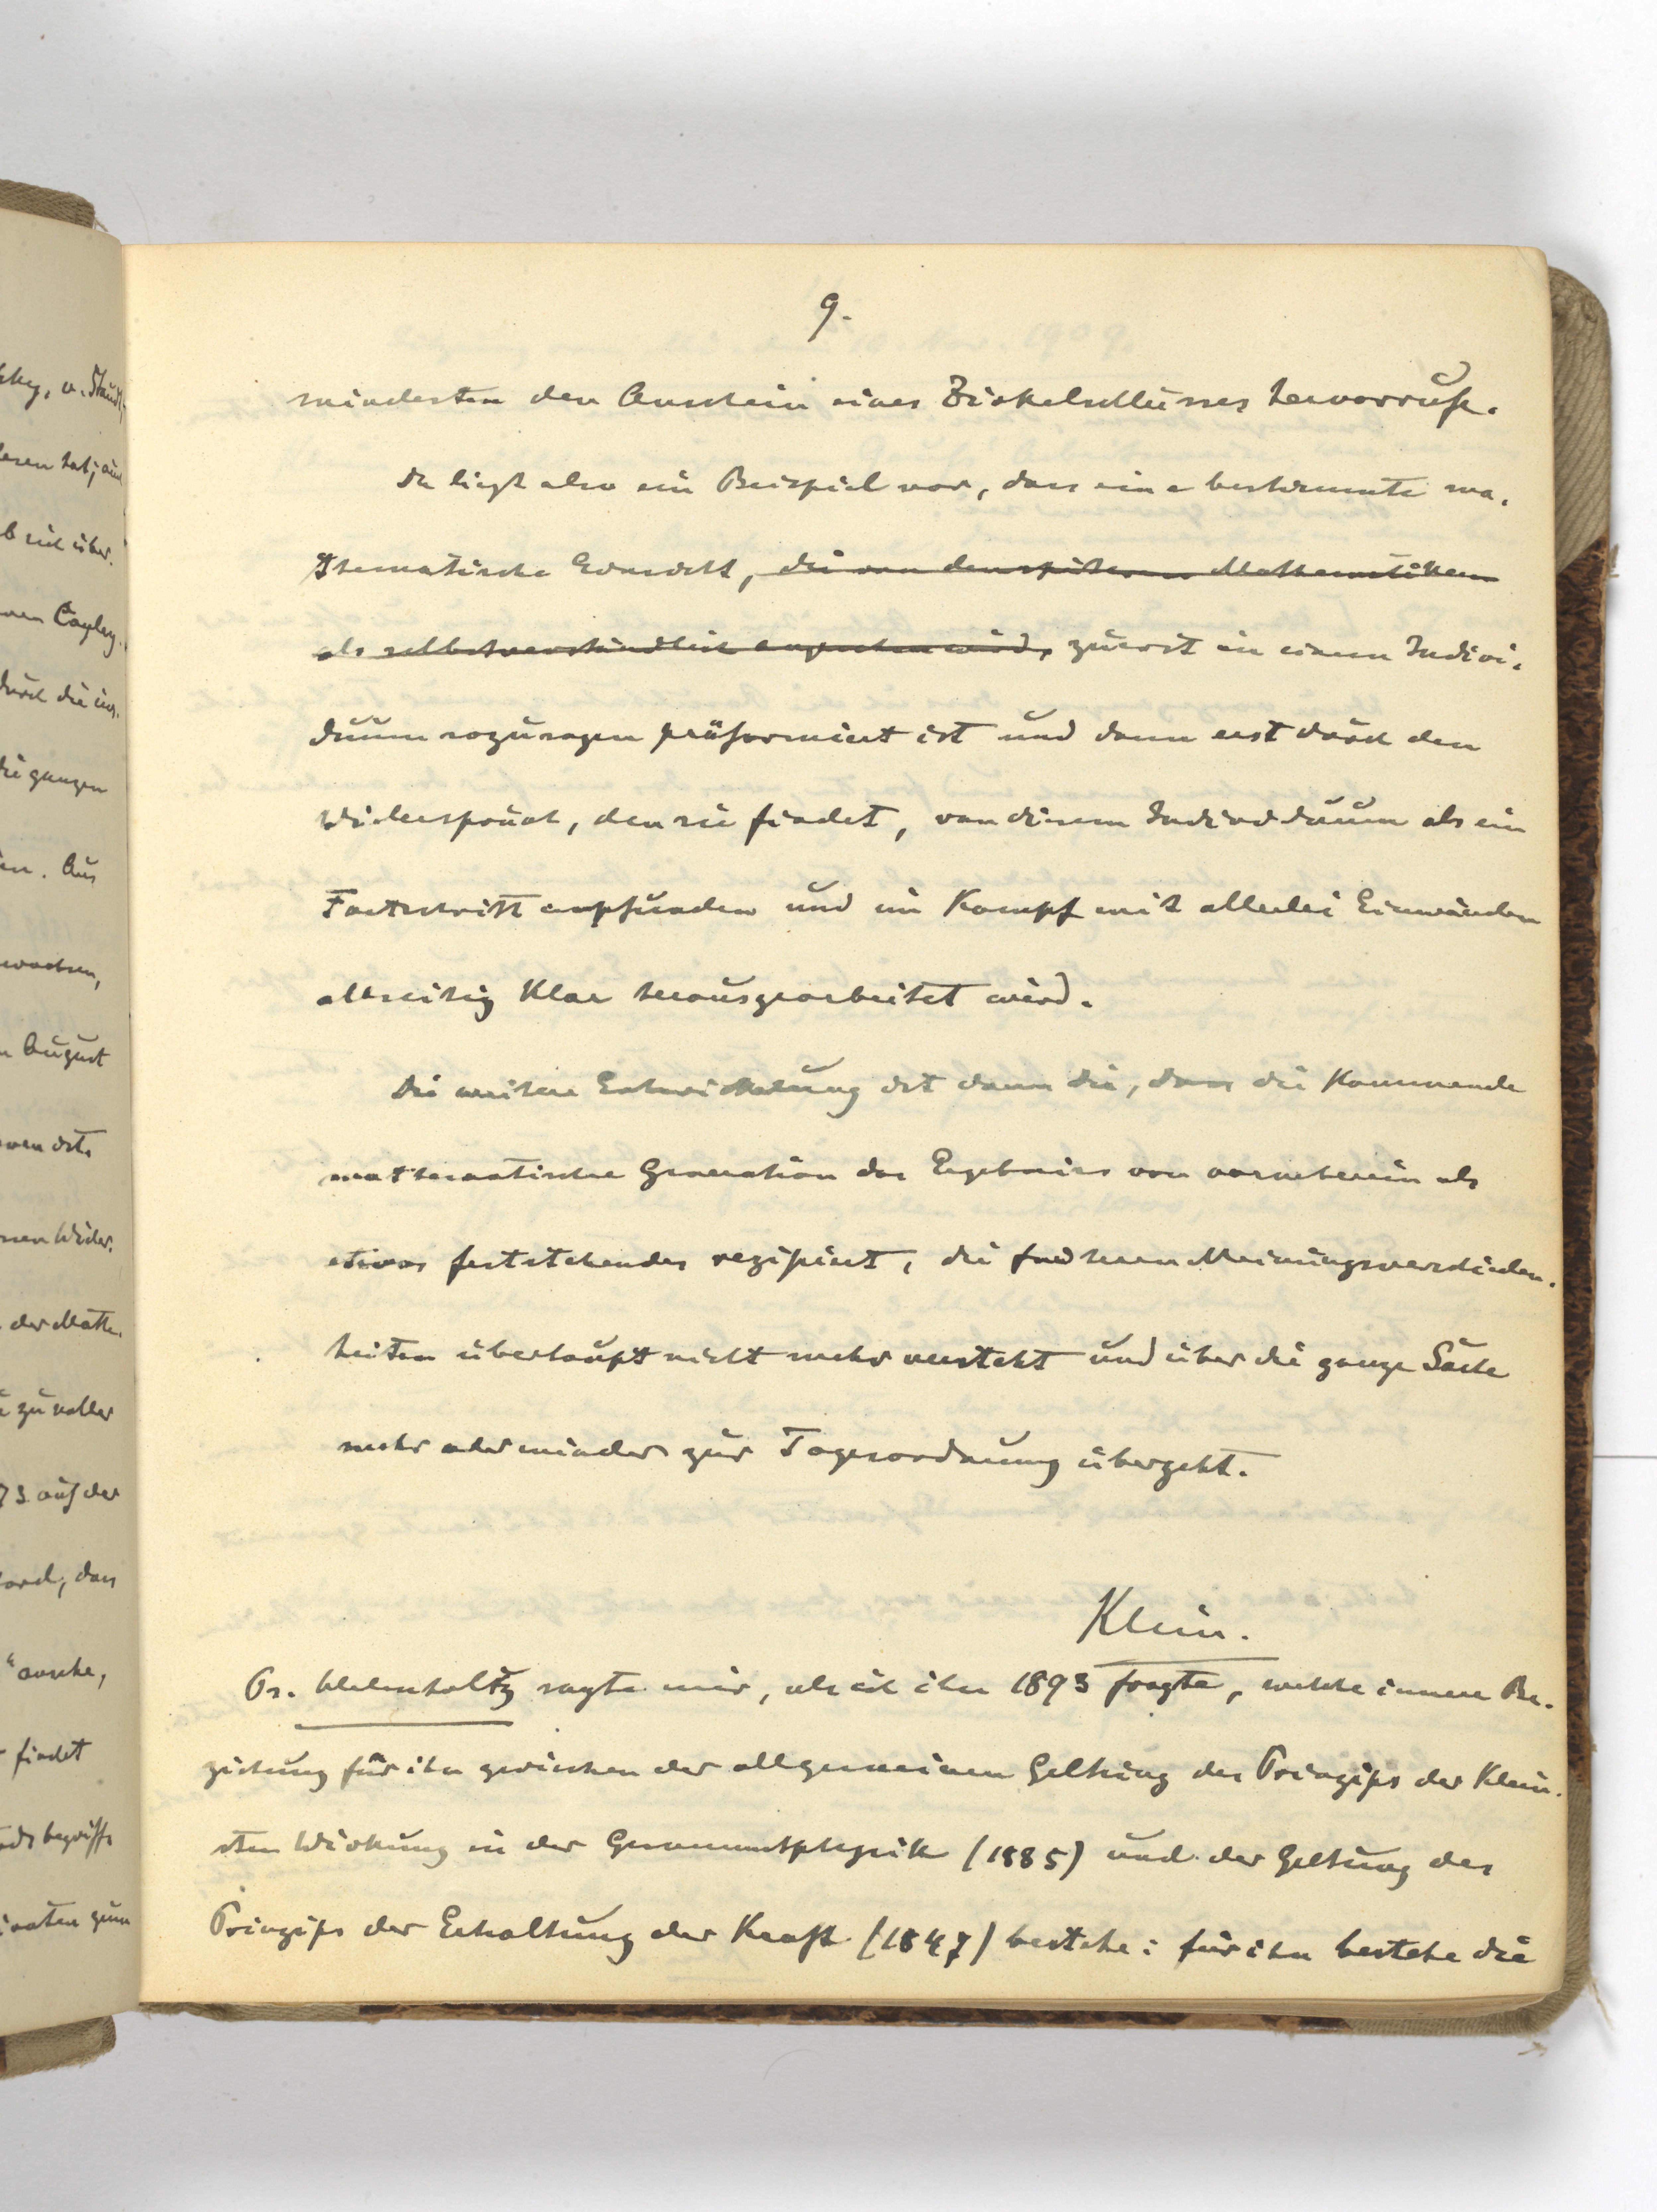 9.
mindesten den Anschein eines Zirkelschlusses hervorruft.
Da liegt also ein Beispiel vor, dass eine bestimmte ma-
thematische Einsicht, die von den späteren Mathematikern
als selbstverständlich angesehen wird, zuerst in einem Indivi-
duum sozusagen präformiert ist und dann erst durch den
Widerspruch, den sie findet, von diesem Individuum als ein
Fortschritt empfunden und im Kampf mit allerlei Einwänden
allseitig klar herausgearbeitet wird.
Die weitere Entwickelung ist dann die, dass die kommende
mathematische Generation das Ergebnis von vorneherein als
etwas feststehendes rezipiert, die früheren Meinungsverschieden-
heiten überhaupt nicht mehr versteht und über die ganze Sache
mehr oder minder zur Tagesordnung übergeht.
Klein.
Ps. Helmholtz sagte mir, als ich ihn 1893 fragte, welche innere Be-
ziehung für ihn zwischen der allgemeinen Geltung des Prinzips der klein-
sten Wirkung in der Gesammtphysik (1885) und der Geltung des
Prinzips der Erhaltung der Kraft (1847) bestehe: für ihn bestehe die
v. Staudt
hat; auch
sich über-
Cayley
durch die
die ganzen
Aus
wachsen,
August
ist.
Wider-
der Mathe-
zu voller
73 auf der
dass
findet
begriffs
zum